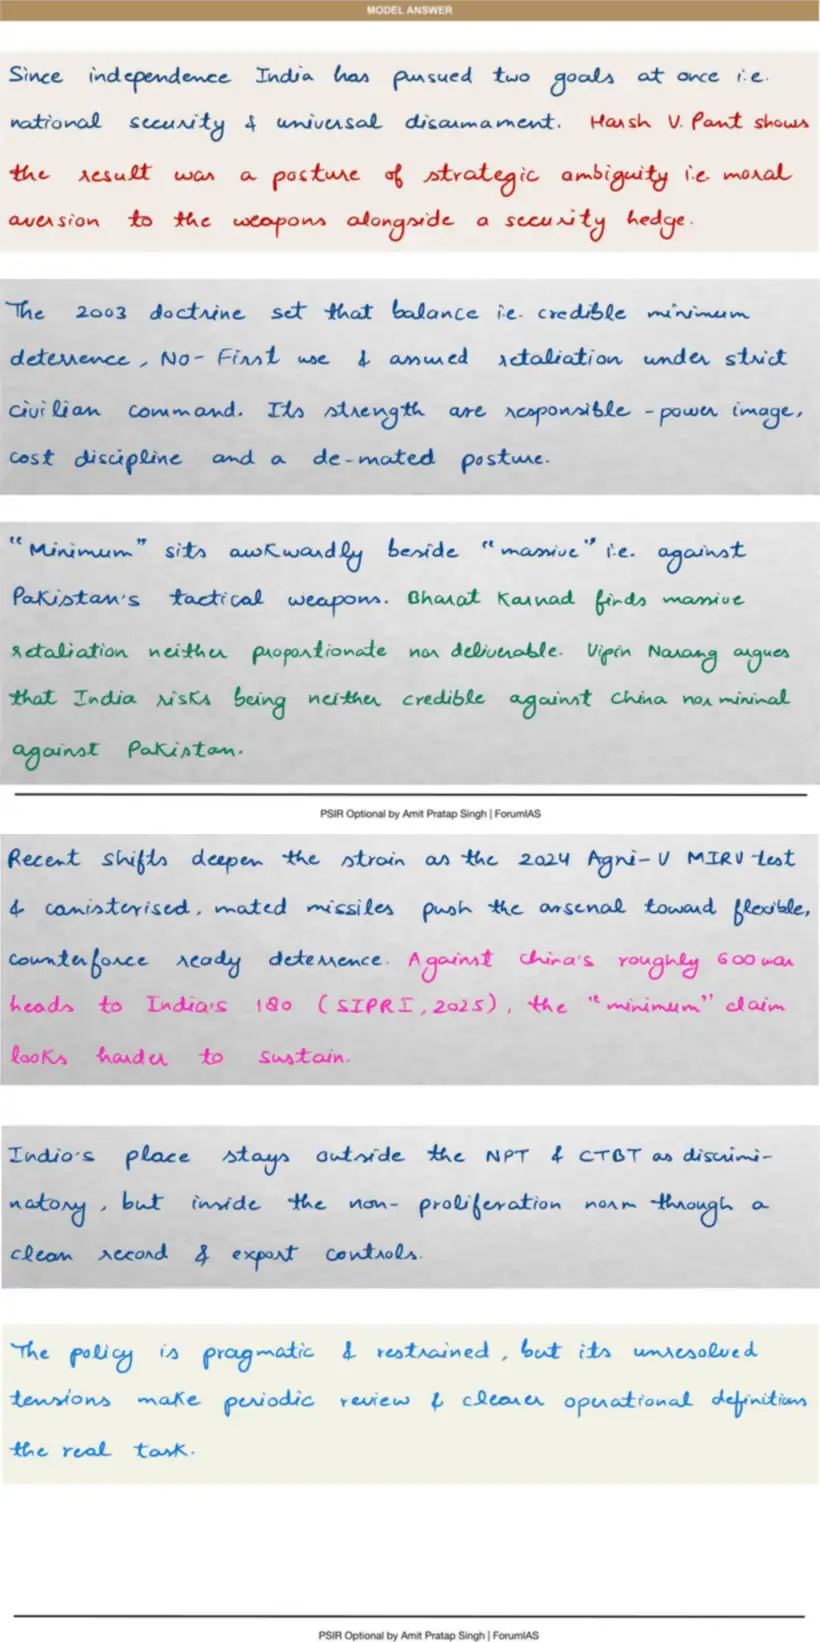 MODEL ANSWER
Since independence India has pursued two goals at once i.e.
national security & universal disarmament. Harsh V. Pant shows
the result was a posture of strategic ambiguity i.e. moral
aversion to the weapons alongside a security hedge.
The 2003 doctrine set that balance i.e. credible minimum
deterrence, No-First use & assured retaliation under strict
civilian command. Its strength are responsible-power image,
cost discipline and a de-mated posture.
"Minimum" sits awkwardly beside "massive" i.e. against
Pakistan's tactical weapons. Bharat Karnad finds massive
retaliation neither proportionate nor deliverable. Vipin Narang argues
that India risks being neither credible against China nor minimal
against Pakistan.
PSIR Optional by Amit Pratap Singh | ForumIAS
Recent shifts deepen the strain as the 2024 Agni-V MIRV test
& canisterised, mated missiles push the arsenal toward flexible,
counterforce ready deterrence. Against China's roughly 600 war
heads to India's 180 (SIPRI, 2025), the "minimum" claim
looks harder to sustain.
India's place stays outside the NPT & CTBT as discrimi-
natory, but inside the non-proliferation norm through a
clean record & export controls.
The policy is pragmatic & restrained, but its unresolved
tensions make periodic review & clearer operational definitions
the real task.
PSIR Optional by Amit Pratap Singh | ForumIAS